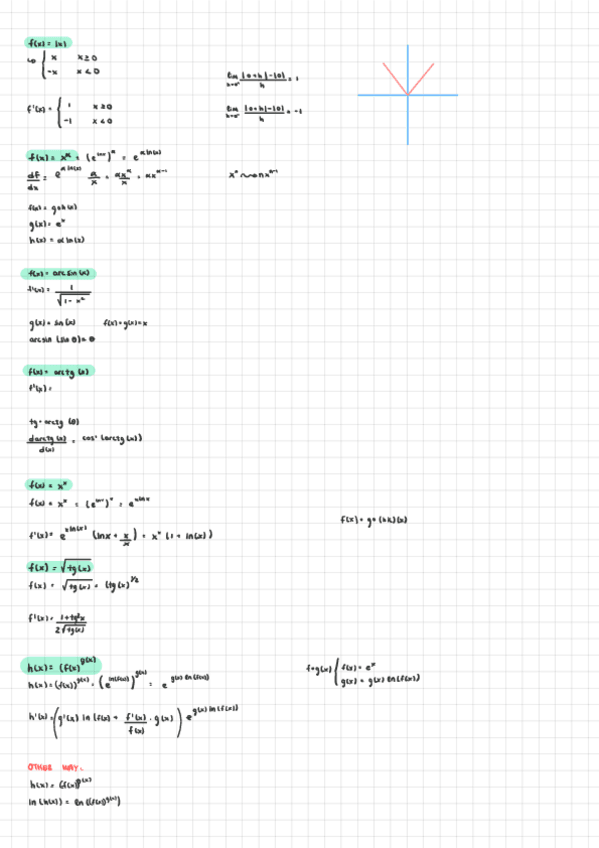 f(x) = |x|
↳ { x x ≥ 0
-x x < 0
lim h→0⁺ |0+h|-|0| / h = 1
f'(x) = { 1 x ≥ 0
-1 x < 0
lim h→0⁻ |0+h|-|0| / h = -1
f(x) = x^α = (e^lnx)^α = e^αln(x)
df/dx = e^αln(x) α/x = αx^α/x = αx^α-1
f(x) = g∘h(x)
g(x) = e^x
h(x) = αln(x)
f(x) = arcsin(x)
f'(x) = 1/√(1-x²)
g(x) = sin(x) f(x)∘g(x)=x
arcsin (sin θ) = θ
f(x) = arctg(x)
f'(x) =
tg∘arctg (θ)
darctg(x)/d(x) = cos² (arctg(x))
f(x) = x^x
f(x) = x^x = (e^lnx)^x = e^xlnx
f(x) = g∘(hk)(x)
f'(x) = e^xln(x) (lnx + x/x) = x^x (1 + ln(x))
f(x) = √tg(x)
f(x) = √tg(x) = (tg(x))^1/2
f'(x) = 1+tg²x / 2√tg(x)
h(x) = (f(x)^g(x)
h(x) = (f(x))^g(x) = (e^ln(f(x)))^g(x) = e^g(x) ln(f(x))
f∘g(x) ( f(x) = e^x
g(x) = g(x) ln(f(x))
h'(x) = (g'(x) ln(f(x) + f'(x)/f(x) · g(x)) e^g(x) ln(f(x))
OTHER WAY:
h(x) = (f(x)^g(x)
ln(h(x)) = ln((f(x)^g(x))